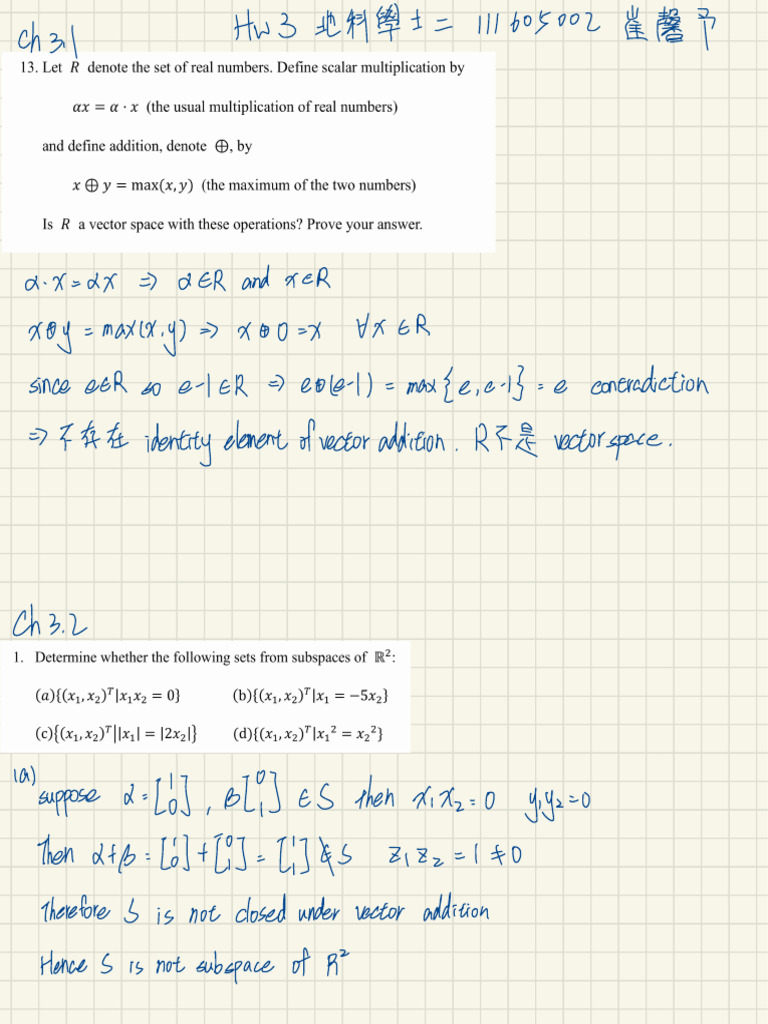 Ch 3.1
HW 3 地科學士二 111605002 崔馨予
13. Let R denote the set of real numbers. Define scalar multiplication by
αx = α · x (the usual multiplication of real numbers)
and define addition, denote ⊕, by
x ⊕ y = max(x, y) (the maximum of the two numbers)
Is R a vector space with these operations? Prove your answer.
α·x = αx ⇒ α∈R and x∈R
x⊕y = max(x,y) ⇒ x⊕0 = x ∀x∈R
since e∈R so e-1∈R ⇒ e⊕(e-1) = max{e, e-1} = e contradiction
⇒ 不存在 identity element of vector addition. R不是 vector space.
Ch 3.2
1. Determine whether the following sets from subspaces of ℝ²:
(a){(x₁, x₂)ᵀ|x₁x₂ = 0} (b){(x₁, x₂)ᵀ|x₁ = −5x₂}
(c){(x₁, x₂)ᵀ||x₁| = |2x₂|} (d){(x₁, x₂)ᵀ|x₁² = x₂²}
1(a) suppose α = [1 0], β[0 1] ∈ S then x₁x₂ = 0 y₁y₂ = 0
Then α+β = [1 0] + [0 1] = [1 1] ∉ S z₁z₂ = 1 ≠ 0
Therefore S is not closed under vector addition
Hence S is not subspace of R²